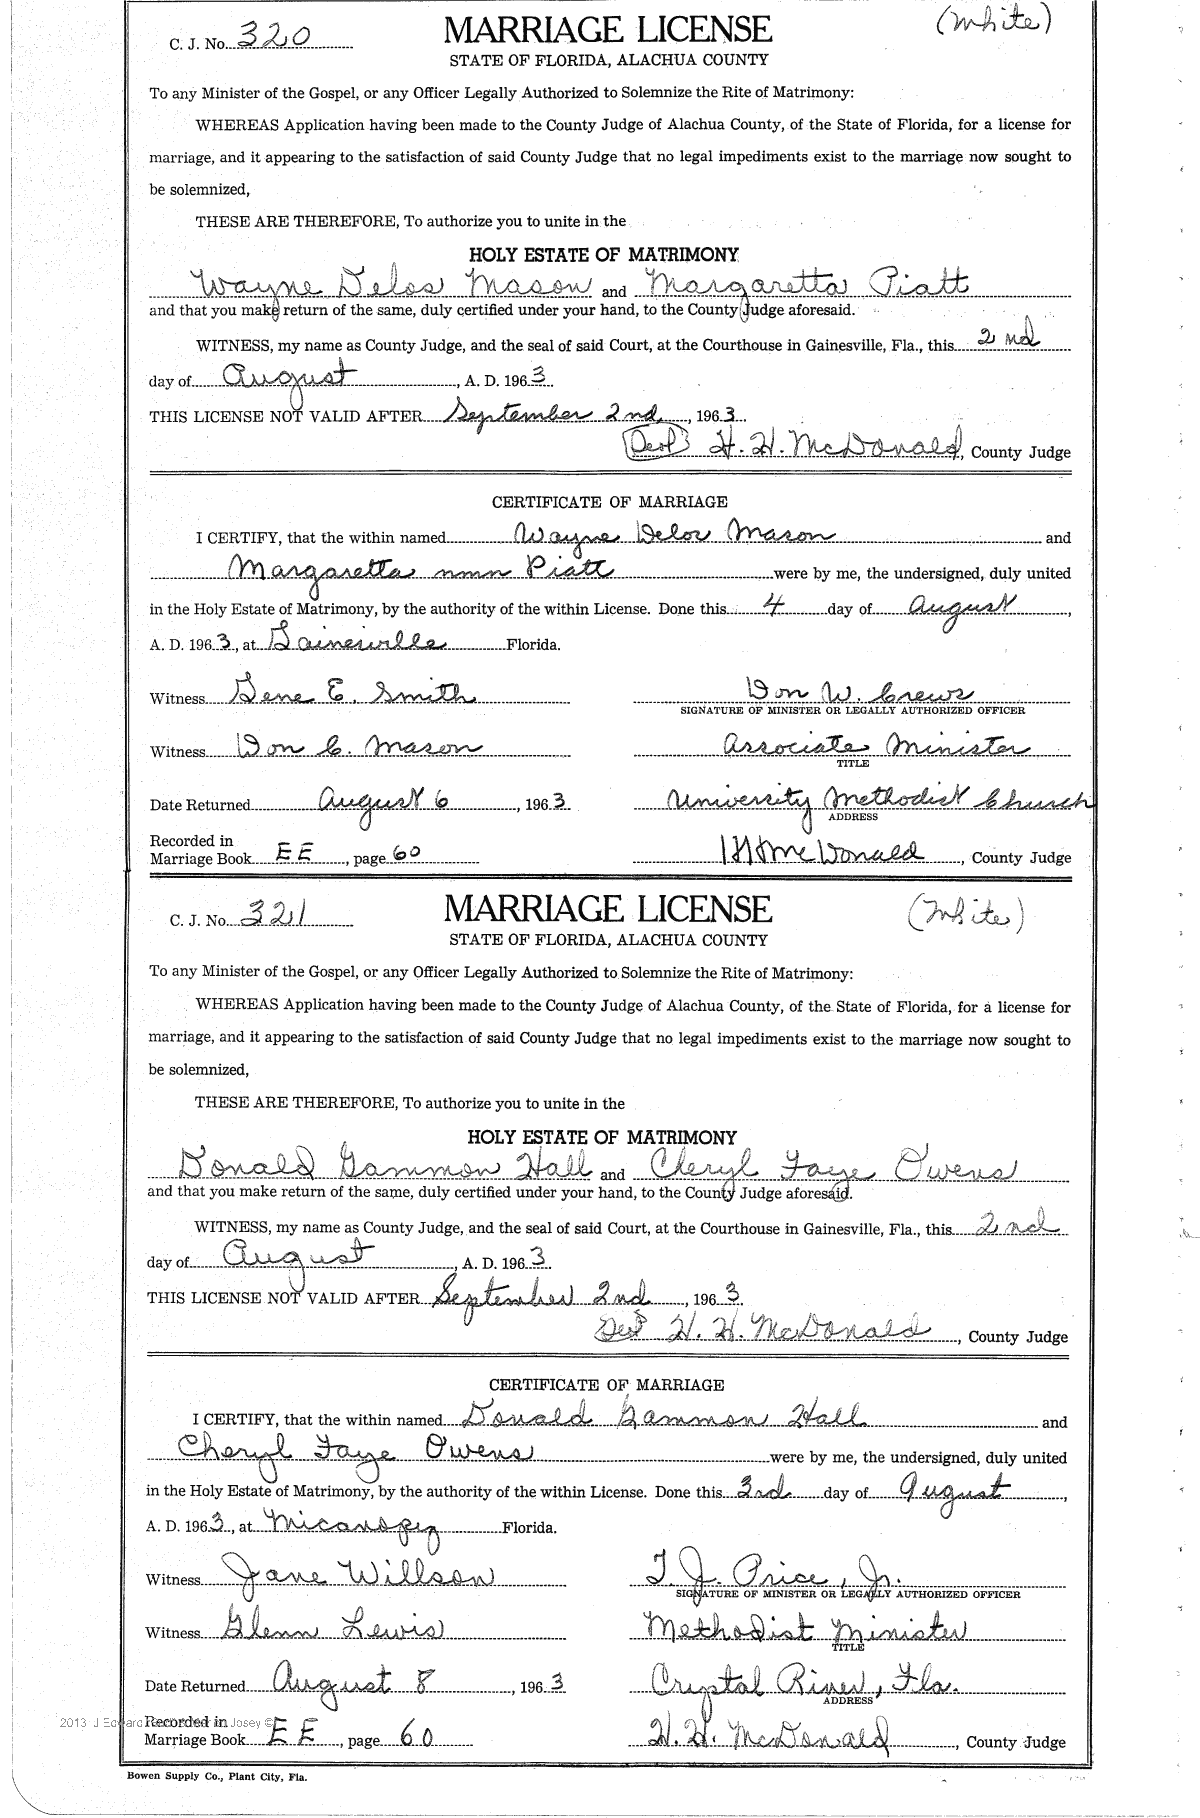 C. J. No. 320 MARRIAGE LICENSE (White)
STATE OF FLORIDA, ALACHUA COUNTY
To any Minister of the Gospel, or any Officer Legally Authorized to Solemnize the Rite of Matrimony:
WHEREAS Application having been made to the County Judge of Alachua County, of the State of Florida, for a license for
marriage, and it appearing to the satisfaction of said County Judge that no legal impediments exist to the marriage now sought to
be solemnized,
THESE ARE THEREFORE, To authorize you to unite in the
HOLY ESTATE OF MATRIMONY
Wayne Delos Mason and Margaretta Piatt
and that you make return of the same, duly certified under your hand, to the County Judge aforesaid.
WITNESS, my name as County Judge, and the seal of said Court, at the Courthouse in Gainesville, Fla., this 2nd
day of August, A. D. 1963.
THIS LICENSE NOT VALID AFTER September 2nd, 1963
(Seal) H. H. McDonald, County Judge
CERTIFICATE OF MARRIAGE
I CERTIFY, that the within named Wayne Delos Mason and
Margaretta nmn Piatt were by me, the undersigned, duly united
in the Holy Estate of Matrimony, by the authority of the within License. Done this 4 day of August,
A. D. 1963, at Gainesville Florida.
Witness Gene E. Smith Don W. Crews
SIGNATURE OF MINISTER OR LEGALLY AUTHORIZED OFFICER
Witness Don C. Mason Associate Minister
TITLE
Date Returned August 6, 1963 University Methodist Church
ADDRESS
Recorded in
Marriage Book EE, page 60 HHMcDonald, County Judge
C. J. No. 321 MARRIAGE LICENSE (White)
STATE OF FLORIDA, ALACHUA COUNTY
To any Minister of the Gospel, or any Officer Legally Authorized to Solemnize the Rite of Matrimony:
WHEREAS Application having been made to the County Judge of Alachua County, of the State of Florida, for a license for
marriage, and it appearing to the satisfaction of said County Judge that no legal impediments exist to the marriage now sought to
be solemnized,
THESE ARE THEREFORE, To authorize you to unite in the
HOLY ESTATE OF MATRIMONY
Donald Gammon Hall and Cheryl Faye Owens
and that you make return of the same, duly certified under your hand, to the County Judge aforesaid.
WITNESS, my name as County Judge, and the seal of said Court, at the Courthouse in Gainesville, Fla., this 2nd
day of August, A. D. 1963.
THIS LICENSE NOT VALID AFTER September 2nd, 1963.
Seal H. H. McDonald, County Judge
CERTIFICATE OF MARRIAGE
I CERTIFY, that the within named Donald Gammon Hall and
Cheryl Faye Owens were by me, the undersigned, duly united
in the Holy Estate of Matrimony, by the authority of the within License. Done this 3rd day of August,
A. D. 1963, at Micanopy Florida.
Witness Jane Willson T. J. Price, Jr.
SIGNATURE OF MINISTER OR LEGALLY AUTHORIZED OFFICER
Witness Glenn Lewis Methodist Minister
TITLE
Date Returned August 8, 1963 Crystal River, Fla.
ADDRESS
2013 J Edward Josey ©
Recorded in
Marriage Book EE, page 60 H. H. McDonald, County Judge
Bowen Supply Co., Plant City, Fla.